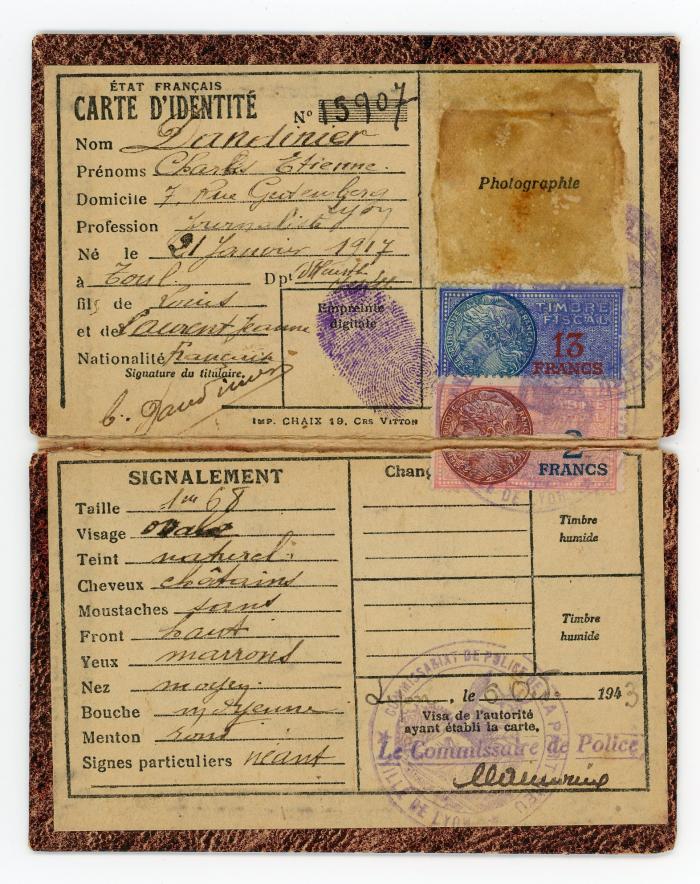 ÉTAT FRANÇAIS
CARTE D'IDENTITÉ
Nº 15907
Nom Dandinier
Prénoms Charles Etienne
Domicile 7, Rue Gutenberg
Lyon
Profession Journaliste
Né le 21 Janvier 1917
à Toul Dpt
fils de Louis
et de Laurent Jeanne
Nationalité Française
Signature du titulaire,
C. Dandinier
Photographie
Empreinte
digitale
TIMBRE
FISCAL
13
FRANCS
2
FRANCS
IMP. CHAIX 19, CRS VITTON
SIGNALEMENT
Taille 1m68
Visage ovale
Teint naturel
Cheveux châtains
Moustaches sans
Front haut
Yeux marrons
Nez moyen
Bouche moyenne
Menton rond
Signes particuliers néant
Chang
Timbre
humide
Timbre
humide
, le 6 1943
Visa de l'autorité
ayant établi la carte,
Le Commissaire de Police
COMMISSARIAT DE POLICE
VILLE DE LYON